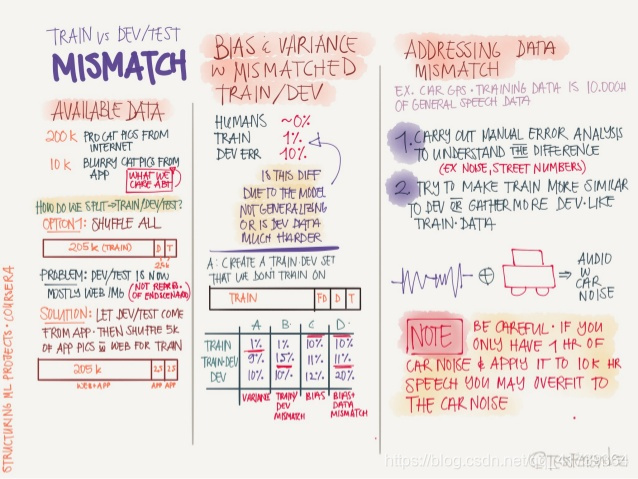 TRAIN vs DEV/TEST
MISMATCH
AVAILABLE DATA
200k PRO CAT PICS FROM
INTERNET
10k BLURRY CAT PICS FROM
APP
WHAT WE
CARE ABT
HOW DO WE SPLIT → TRAIN/DEV/TEST?
OPTION 1: SHUFFLE ALL
205k (TRAIN) D T
PROBLEM: DEV/TEST IS NOW
MOSTLY WEB IMG (NOT REPR.
OF END SCENARIO)
SOLUTION: LET DEV/TEST COME
FROM APP. THEN SHUFFLE 5K
OF APP PICS W WEB FOR TRAIN
205k 2.5 2.5
WEB+APP APP APP
STRUCTURING ML PROJECTS · COURSERA
BIAS & VARIANCE
W MISMATCHED
TRAIN/DEV
HUMANS ~0%
TRAIN 1%
DEV ERR 10%
IS THIS DIFF
DUE TO THE MODEL
NOT GENERALIZING
OR IS DEV DATA
MUCH HARDER
A: CREATE A TRAIN-DEV SET
THAT WE DON'T TRAIN ON
TRAIN D T
A B C D
TRAIN 1% 1% 10% 10%
TRAIN-DEV 9% 1.5% 11% 11%
DEV 10% 10% 12% 20%
VARIANCE TRAIN/ BIAS BIAS+
DEV DATA
MISMATCH MISMATCH
ADDRESSING DATA
MISMATCH
EX. CAR GPS · TRAINING DATA IS 10.000H
OF GENERAL SPEECH DATA
1. CARRY OUT MANUAL ERROR ANALYSIS
TO UNDERSTAND THE DIFFERENCE
(EX NOISE, STREET NUMBERS)
2. TRY TO MAKE TRAIN MORE SIMILAR
TO DEV OR GATHER MORE DEV-LIKE
TRAIN-DATA
AUDIO
W
CAR
NOISE
NOTE BE CAREFUL · IF YOU
ONLY HAVE 1 HR OF
CAR NOISE & APPLY IT TO 10K HR
SPEECH YOU MAY OVERFIT TO
THE CAR NOISE